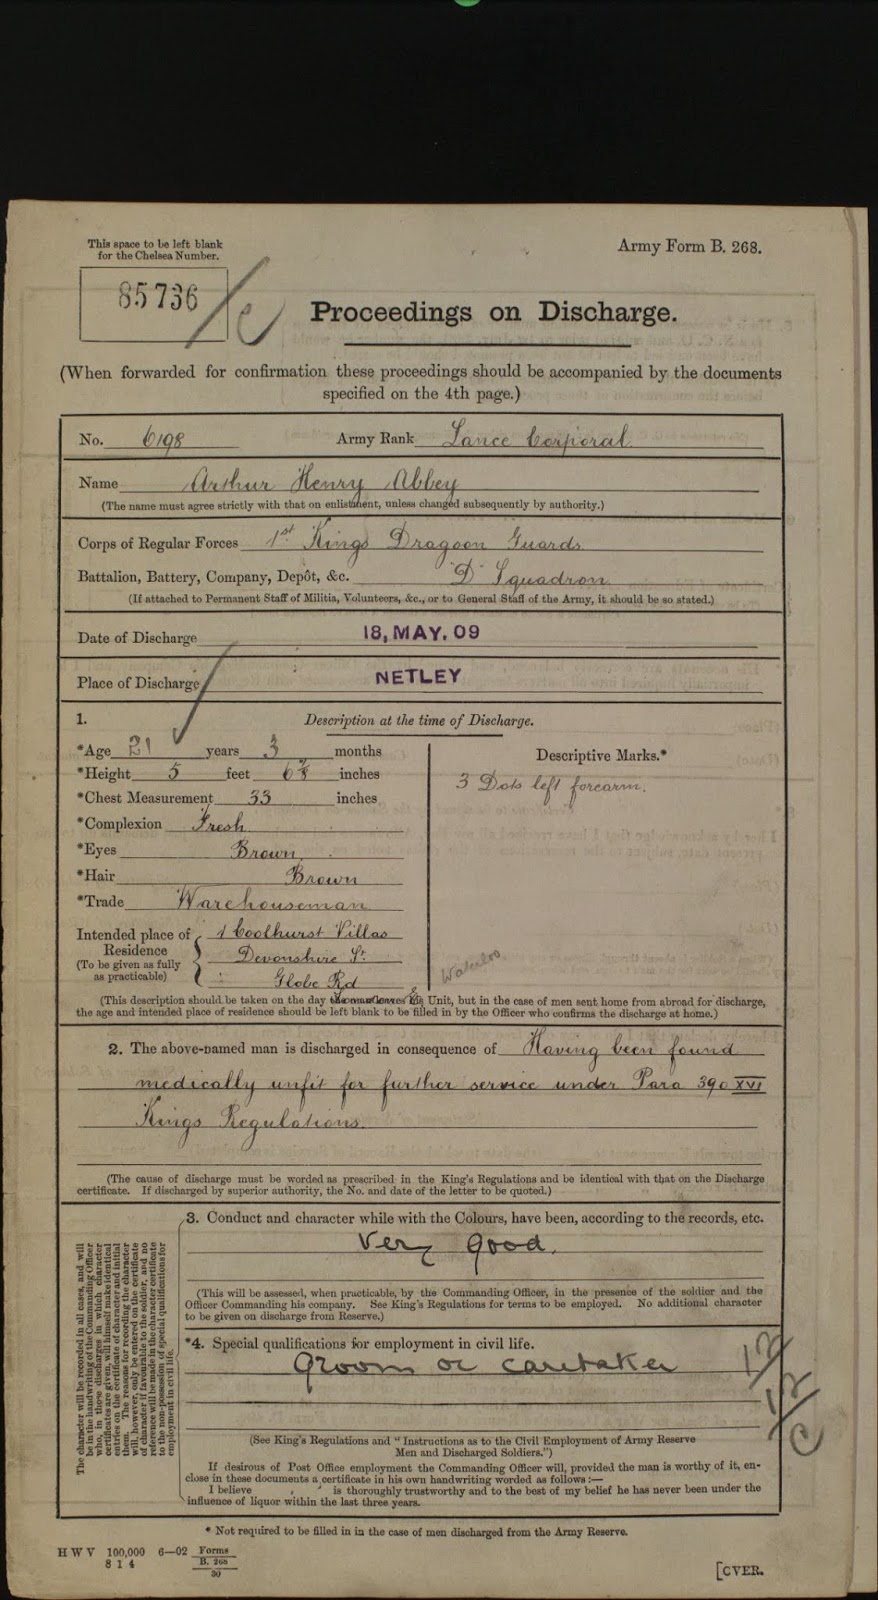 This space to be left blank
for the Chelsea Number.
Army Form B. 268.
85736/C
Proceedings on Discharge.
(When forwarded for confirmation these proceedings should be accompanied by the documents
specified on the 4th page.)
No. 6198 Army Rank Lance Corporal
Name Arthur Henry Abbey
(The name must agree strictly with that on enlistment, unless changed subsequently by authority.)
Corps of Regular Forces 1st Kings Dragoon Guards
Battalion, Battery, Company, Depôt, &c. "D" Squadron
(If attached to Permanent Staff of Militia, Volunteers, &c., or to General Staff of the Army, it should be so stated.)
Date of Discharge 18, MAY. 09
Place of Discharge NETLEY
1. Description at the time of Discharge.
*Age 21 years 3 months
*Height 5 feet 6 inches
*Chest Measurement 33 inches
*Complexion Fresh
*Eyes Brown
*Hair Brown
*Trade Warehouseman
Intended place of Residence (To be given as fully as practicable)
1 Coolhurst Villas
Devonshire St.
Globe Rd
Descriptive Marks.*
3 Dots left forearm.
Waterloo
(This description should be taken on the day Unit, but in the case of men sent home from abroad for discharge,
the age and intended place of residence should be left blank to be filled in by the Officer who confirms the discharge at home.)
2. The above-named man is discharged in consequence of Having been found
medically unfit for further service under Para 390 XVI
Kings Regulations.
(The cause of discharge must be worded as prescribed in the King's Regulations and be identical with that on the Discharge
certificate. If discharged by superior authority, the No. and date of the letter to be quoted.)
The character will be recorded in all cases, and will
be in the handwriting of the Commanding Officer
who, in those discharges in which character
certificates are given, will himself make identical
entries on the certificate of character and initial
them. The reasons for recording the character
will, however, only be entered on the certificate
of character if favourable to the soldier, and no
reference will be made in the character certificate
to the non-possession of special qualifications for
employment in civil life.
3. Conduct and character while with the Colours, have been, according to the records, etc.
Very good.
(This will be assessed, when practicable, by the Commanding Officer, in the presence of the soldier and the
Officer Commanding his company. See King's Regulations for terms to be employed. No additional character
to be given on discharge from Reserve.)
*4. Special qualifications for employment in civil life.
Groom or caretaker
(See King's Regulations and "Instructions as to the Civil Employment of Army Reserve
Men and Discharged Soldiers.")
If desirous of Post Office employment the Commanding Officer will, provided the man is worthy of it, en-
close in these documents a certificate in his own handwriting worded as follows:—
I believe is thoroughly trustworthy and to the best of my belief he has never been under the
influence of liquor within the last three years.
* Not required to be filled in in the case of men discharged from the Army Reserve.
H W V 100,000 6—02 Forms
8 1 4 B. 268
30
[OVER.